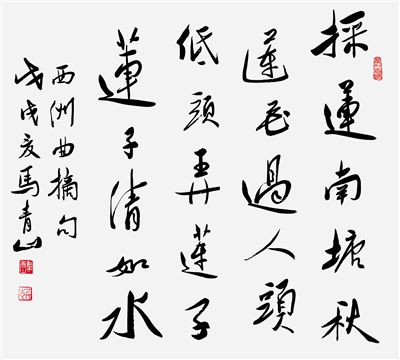 採蓮南塘秋
蓮花過人頭
低頭弄蓮子
蓮子清如水
西洲曲摘句
戊戌夏馬青山